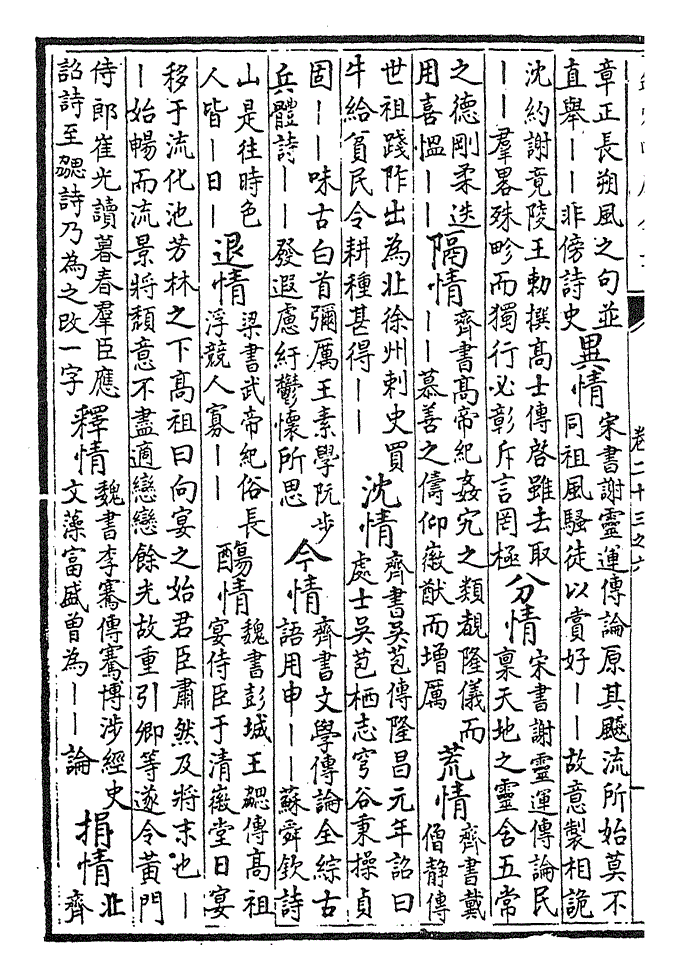 卷二十三之六
章正長朔風之句並
直舉丨丨非傍詩史
異情
宋書謝靈運傳論原其飈流所始莫不
同祖風騷徒以賞好丨丨故意製相詭
沈約謝竟陵王勅撰高士傳啓雖去取
丨丨羣畧殊畛而獨行必彰斥言罔極
分情
宋書謝靈運傳論民
稟天地之靈含五常
之德剛柔迭
用喜愠丨丨
隔情
齊書高帝紀姦宄之類覩隆儀而
丨丨慕善之儔仰徽猷而增厲
荒情
齊書戴
僧静傳
世祖踐阼出為北徐州刺史買
牛給貧民令耕種甚得丨丨
沈情
齊書吳苞傳隆昌元年詔曰
處士吳苞栖志穹谷秉操貞
固丨丨味古白首彌厲王素學阮步
兵體詩丨丨發遐慮紆鬱懷所思
今情
齊書文學傳論全綜古
語用申丨丨蘇舜欽詩
山是往時色
人皆丨日丨
退情
梁書武帝紀俗長
浮競人寡丨丨
觴情
魏書彭城王勰傳高祖
宴侍臣于清徽堂日宴
移于流化池芳林之下高祖曰向宴之始君臣肅然及將末也丨
丨始暢而流景將頹意不盡適戀戀餘光故重引卿等遂令黃門
侍郎崔光讀暮春羣臣應
詔詩至勰詩乃為之改一字
釋情
魏書李騫傳騫博涉經史
文藻富盛曾為丨丨論
捐情
北
齊